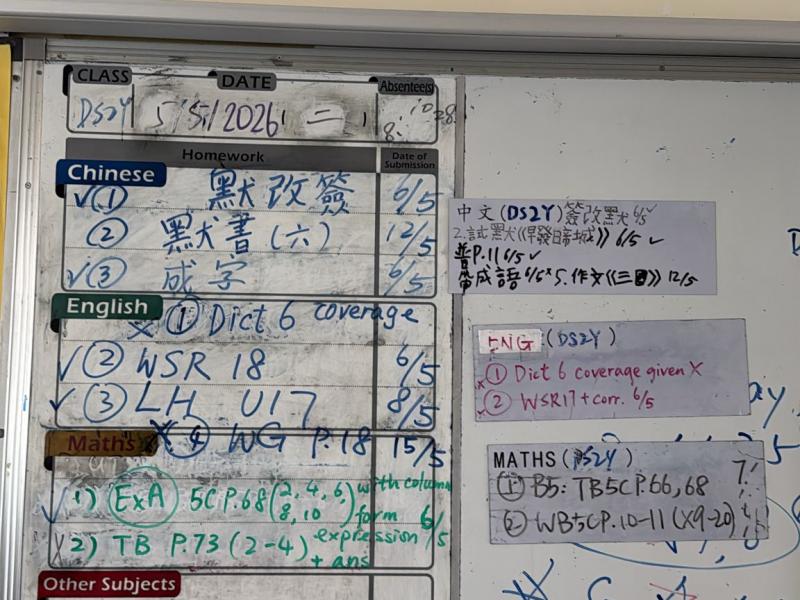 CLASS DATE Absentee(s)
DS2Y 5/5/2026 二
Homework Date of Submission
Chinese
✓① 默改簽 6/5
② 默書（六） 12/5
✓③ 成字 6/5
English
× ① Dict 6 coverage
✓② WSR 18 6/5
✓③ LH U17 8/5
Maths × ④ WG P.18 15/5
✓1) ExA 5C P.68 (2, 4, 6, 8, 10) with column form 6/5
×2) TB P.73 (2-4) expression + ans
Other Subjects
中文 (DS2Y) 簽改默 6/5 ✓
2. 試默《早發帝城》 6/5 ✓
普P.11 6/5 ✓
帶成語 6/5 × 5. 作文《三》 12/5
ENG (DS2Y)
× ① Dict 6 coverage given ×
× ② WSR17 + corr. 6/5
MATHS (DS2Y)
① B5: TB5CP.66, 68
② WB5CP.10-11 (×9-20)